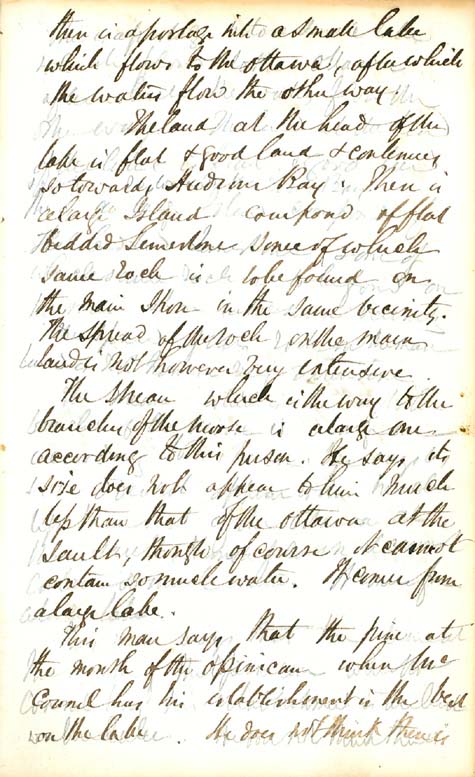 then is a portage into a small lake
which flows to the Ottawa, after which
the waters flow the other way.
The land at the head of the
lake is flat & good land & continues
so towards Hudsons Bay. There is
a large Island composed of flat
bedded Limestone some of which
same rock is to be found on
the main shore in the same vicinity.
The spread of the rock on the main
land is not however very extensive.
The stream which is the way to the
branches of the moose is a large one
according to this person. He says its
size does not appear to him much
less than that of the Ottawa at the
Sault, though of course it cannot
contain so much water. It comes from
a large lake.
This man says that the pine at
the mouth of the Opinican where Mc
Connel has his establishment is the best
on the lake. He does not think there is